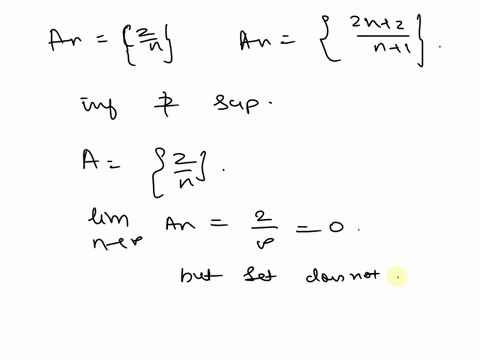 An = {2/n} An = {2n+2/n+1}.
inf ≠ sup.
A = {2/n}.
lim n→∞ An = 2/∞ = 0.
but set does not